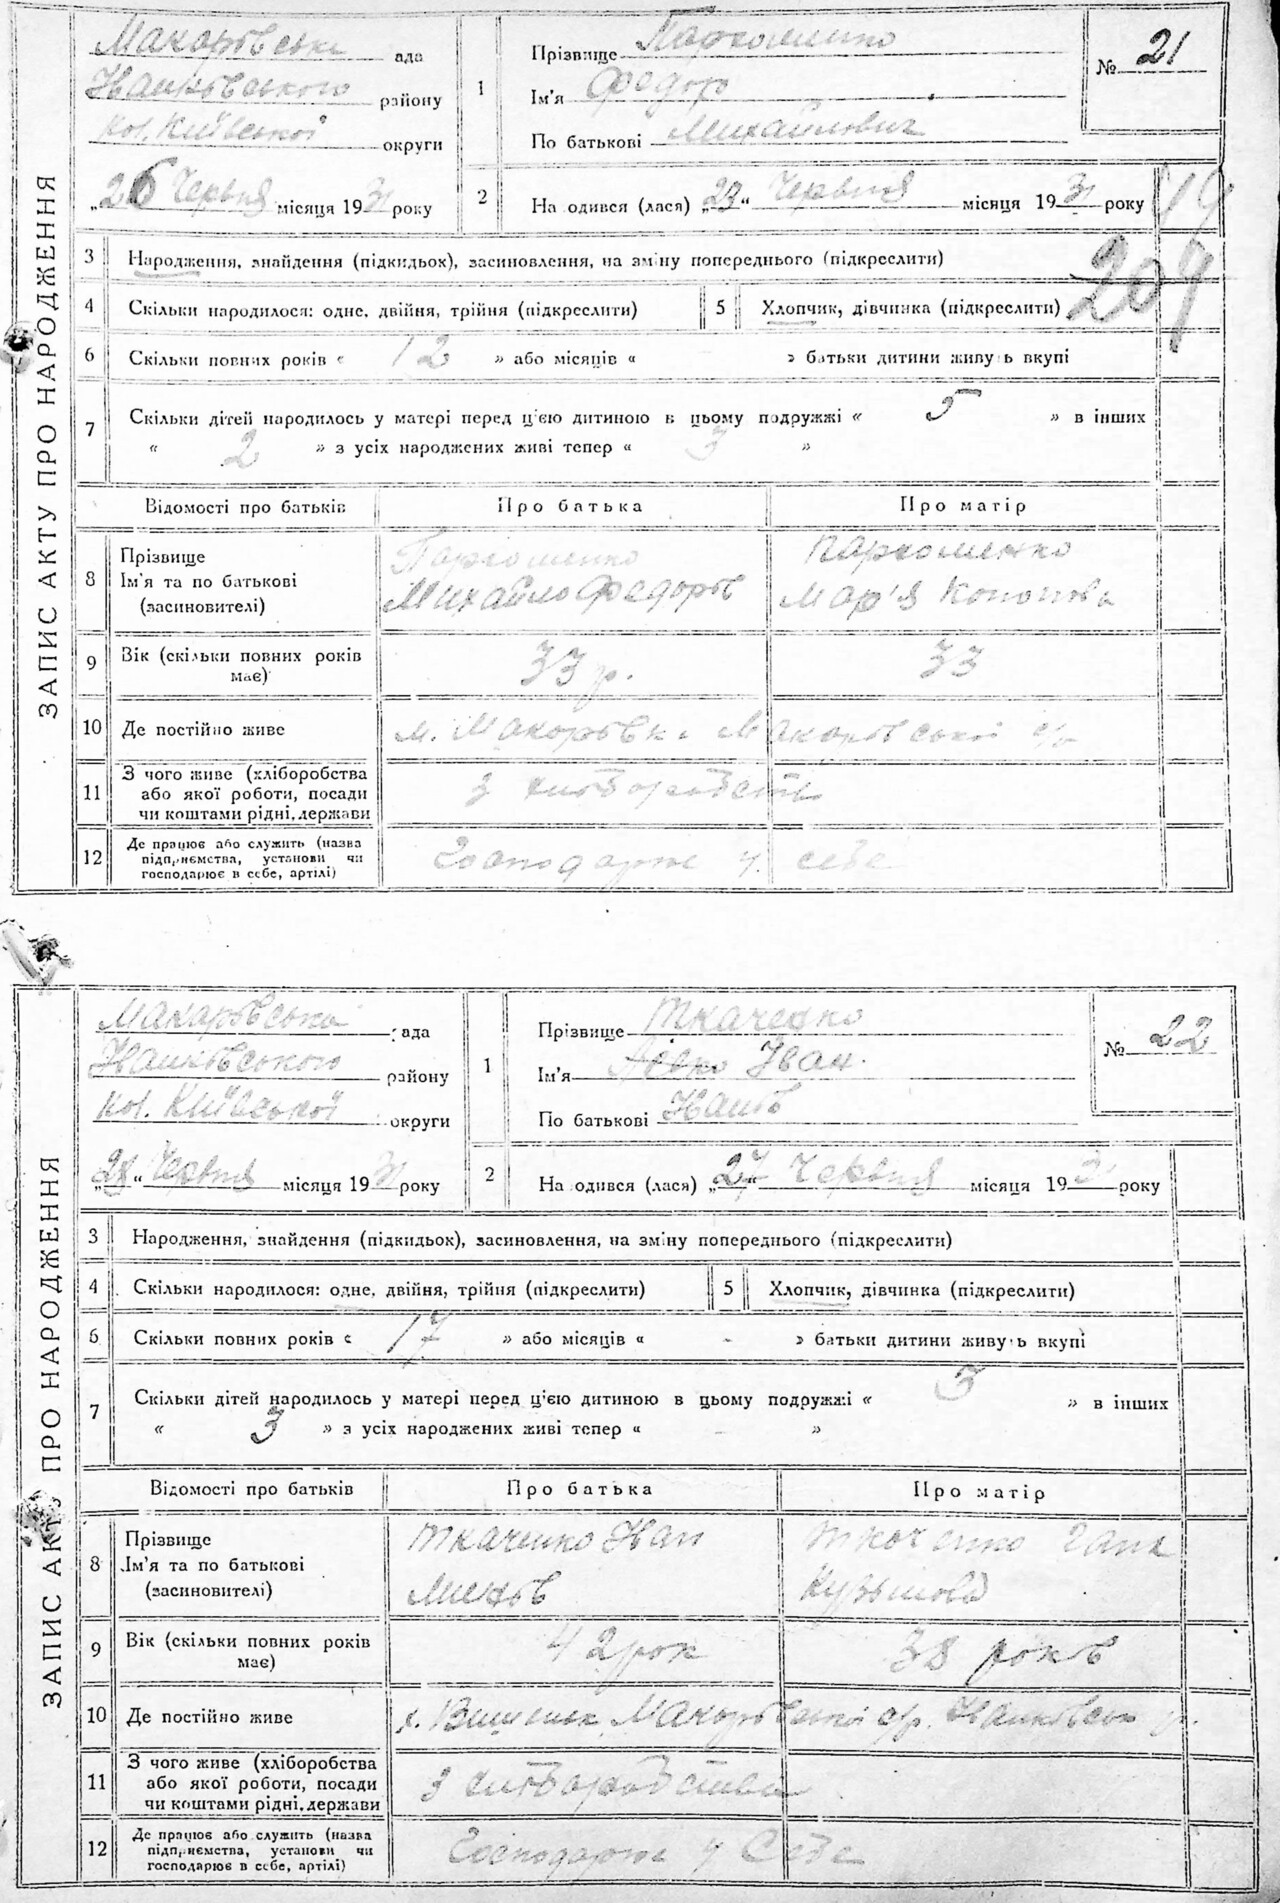 ЗАПИС АКТУ ПРО НАРОДЖЕННЯ
Макарівська ада
Іванківського району
кол. Київської округи
„26 Червня місяця 1931 року
1 Прізвище Пархоменко
Ім'я Федор
По батькові Михайлович
№ 21
2 На одився (лася) „23“ Червня місяця 1931 року
19
204
3 Народження, знайдення (підкидьох), засиновлення, на зміну попереднього (підкреслити)
4 Скільки народилося: одне, двійня, трійня (підкреслити) 5 Хлопчик, дівчинка (підкреслити)
6 Скільки повних років « 12 » або місяців « » батьки дитини живу ь вкупі
7 Скільки дітей народилось у матері перед ц'єю дитиною в цьому подружжі « 5 » в інших
« 2 » з усіх народжених живі тепер « 3 »
Відомості про батьків Про батька Про матір
8 Прізвище Пархоменко Пархоменко
Ім'я та по батькові Михайло Федорів Мар'я Кононова
(засиновителі)
9 Вік (скільки повних років має) 33 р. 33
10 Де постійно живе м. Макарівка Макарівської с/р
11 З чого живе (хліборобства або якої роботи, посади чи коштами рідні, держави з хліборобства
12 Де працює або служить (назва підприємства, установи чи господарює в себе, артілі) Господарює у себе
ЗАПИС АКТУ ПРО НАРОДЖЕННЯ
Макарівська ада
Іванківського району
кол. Київської округи
„28“ Червня місяця 1931 року
1 Прізвище Ткаченко
Ім'я Іван
По батькові Іванів
№ 22
2 На одився (лася) „27“ Червня місяця 193 року
3 Народження, знайдення (підкидьок), засиновлення, на зміну попереднього (підкреслити)
4 Скільки народилося: одне, двійня, трійня (підкреслити) 5 Хлопчик, дівчинка (підкреслити)
6 Скільки повних років « 17 » або місяців « - » батьки дитини живу ь вкупі
7 Скільки дітей народилось у матері перед ц'єю дитиною в цьому подружжі « 3 » в інших
« 3 » з усіх народжених живі тепер « - »
Відомості про батьків Про батька Про матір
8 Прізвище Ткаченко Іван Ткаченко Гапка
Ім'я та по батькові Кузьмова
(засиновителі)
9 Вік (скільки повних років має) 42 рок 38 років
10 Де постійно живе Макарівської с/р. Іванківськ р.
11 З чого живе (хліборобства або якої роботи, посади чи коштами рідні, держави з хліборобства
12 Де працює або служить (назва підприємства, установи чи господарює в себе, артілі) Господарює у Себе